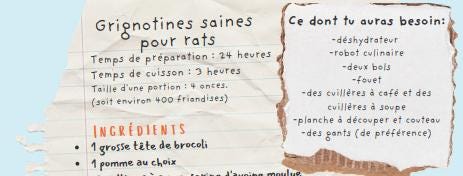 Grignotines saines
pour rats
Temps de préparation : 24 heures
Temps de cuisson : 3 heures
Taille d'une portion : 4 onces.
(soit environ 400 friandises)
INGRÉDIENTS
• 1 grosse tête de brocoli
• 1 pomme au choix
d'avoine moulue
Ce dont tu auras besoin:
-déshydrateur
-robot culinaire
-deux bols
-fouet
-des cuillères à café et des
cuillères à soupe
-planche à découper et couteau
-des gants (de préférence)